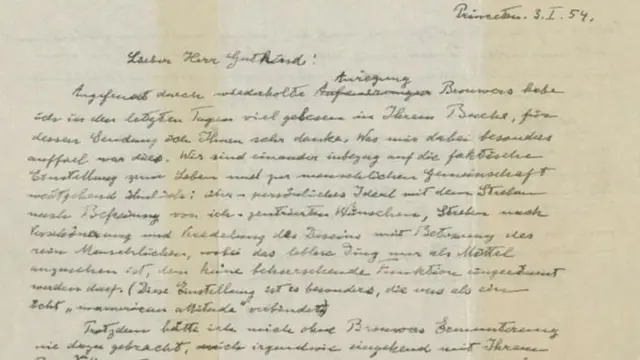 Princeton. 3. I. 54.
Lieber Herr Gutkind!
Anregung
Angefeuert durch wiederholte Brouwers habe
ich in den letzten Tagen viel gelesen in Ihrem Buche, für
dessen Sendung ich Ihnen sehr danke. Was mir dabei besonders
auffiel war dies. Wir sind einander inbezug auf die faktische
Einstellung zum Leben und zur menschlichen Gemeinschaft
weitgehend ähnlich: persönliches Ideal mit dem Streben
nach Befreiung von ich-zentrierten Wünschen, Streben nach
Verschönerung und Veredelung des Daseins mit Betonung des
rein Menschlichen, wobei das leblose Ding nur als Mittel
anzusehen ist, dem keine beherrschende Funktion eingeräumt
werden darf. (Diese Einstellung ist es besonders, die uns als ein
echt „unamerican attitude" verbindet)
Trotzdem hätte ich mich ohne Brouwers Ermunterung
nie dazu gebracht, mich irgendwie eingehend mit Ihrem